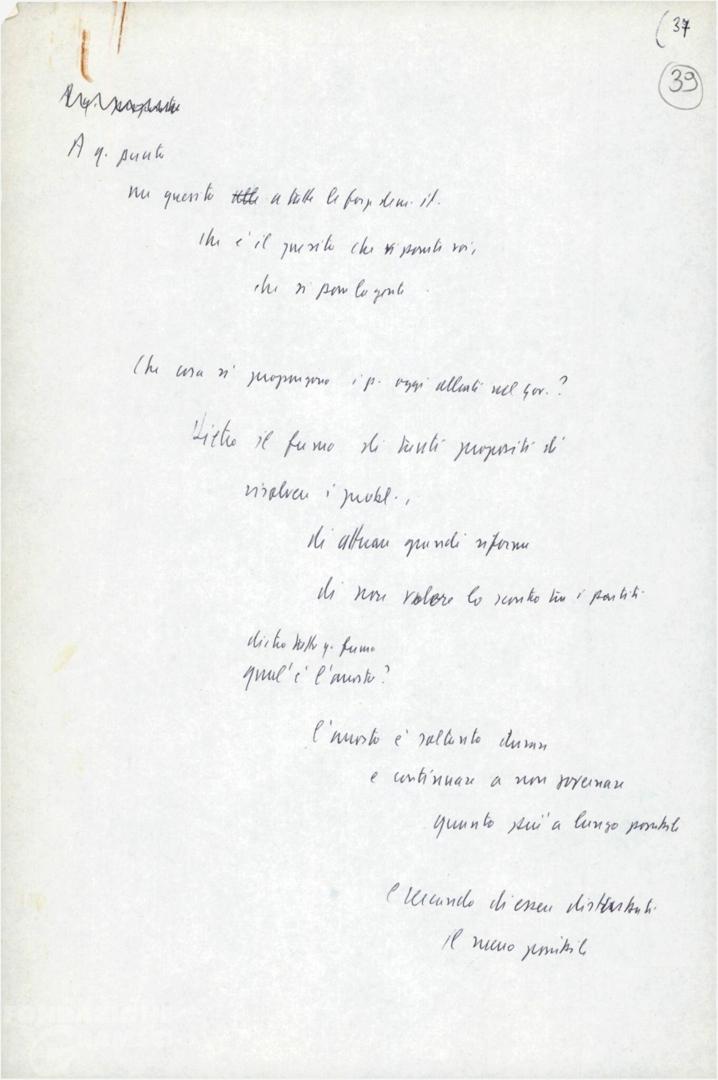 (37
39
A q. punto
un quesito a tutte le forze dem. it.
che è il quesito che vi ponete voi,
che si pone la gente
Che cosa si propongono i p. oggi alleati nel gov.?
Dietro il fumo di tanti propositi di
risolvere i probl.,
di attuare grandi riforme
di non volere lo scontro tra i partiti
dietro tutto q. fumo
qual'è l'arrosto?
l'arrosto è soltanto durare
e continuare a non governare
quanto più a lungo possibile
e cercando di essere disturbati
il meno possibile